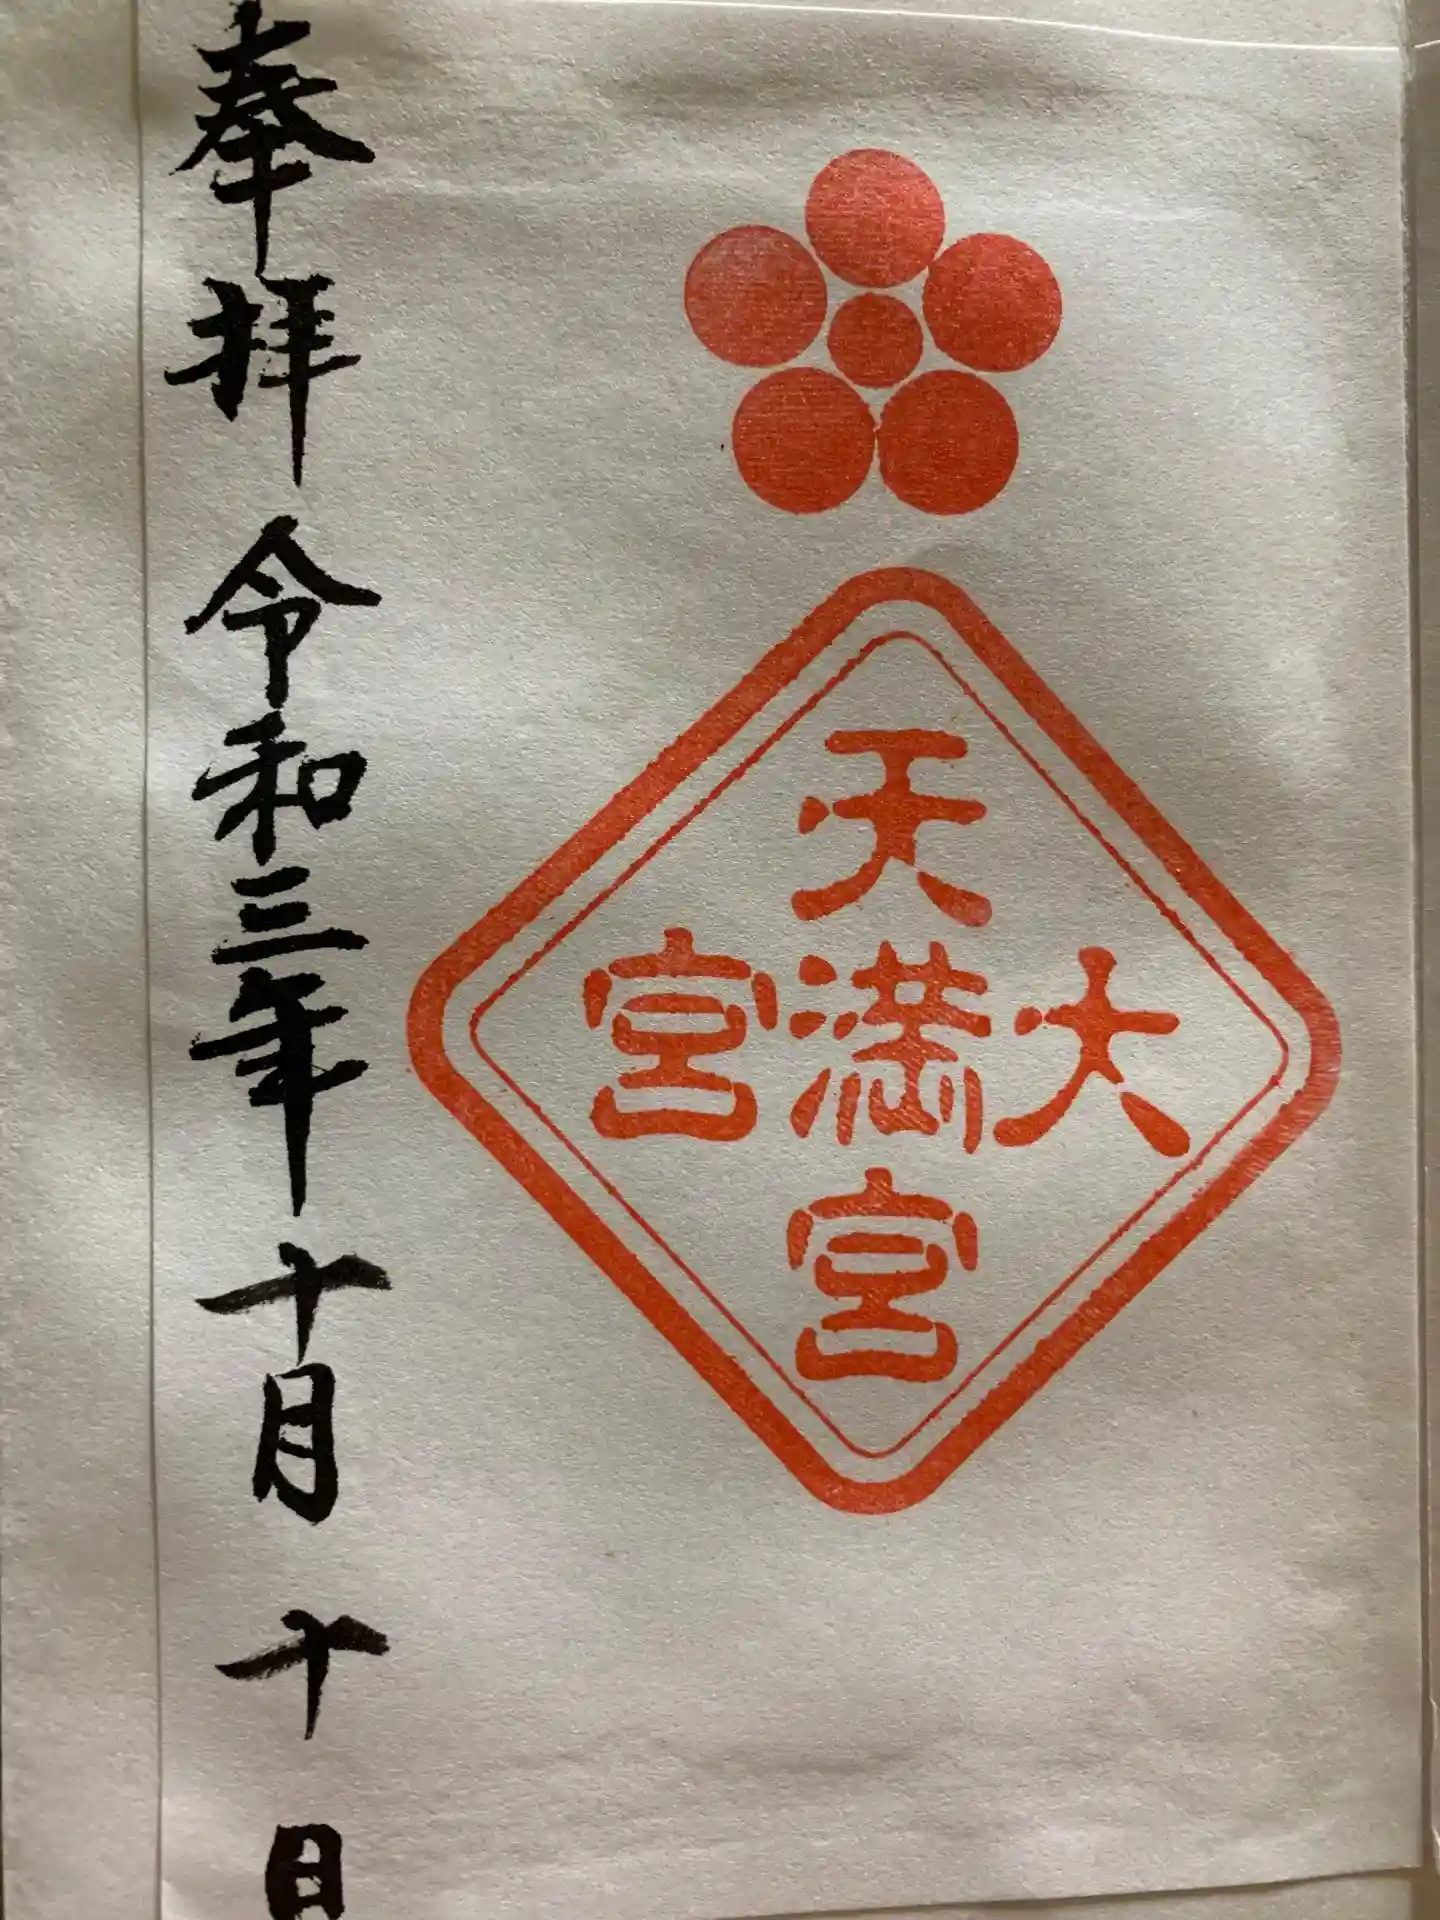 大
天満宮
宮
奉拝 令和三年十月十日